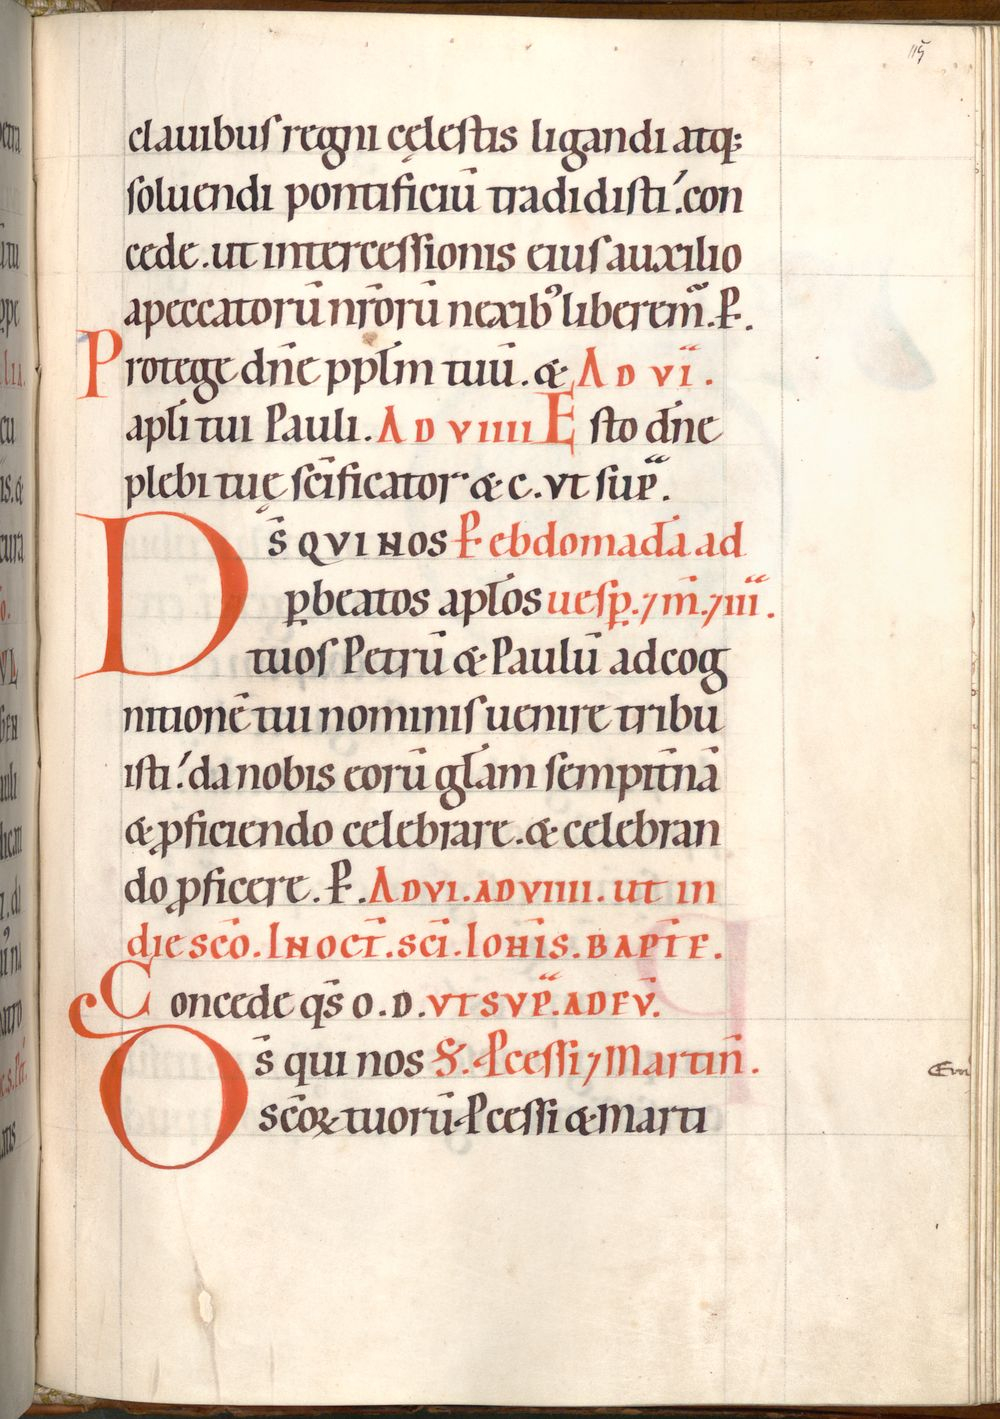 115
clauibus regni cęlestis ligandi atq;
soluendi pontificiū tradidisti. con
cede. ut intercessionis eius auxilio
apeccatorū nr̄orū nexib' liberem̄. P̱.
Protege dn̄e ppl̄m tuū. & AD VI.
apl̄i tui Pauli. AD VIIII Esto dn̄e
plebi tuę sc̄ificator & c. vt sup̄.
Ds̄ QVI NOS P ebdomadā ad
ꝑbeatos apl̄os uesp̄. 7 m̄. 7 iii.
tuos Petrū & Paulū adcog
nitionē tui nominis uenire tribu
isti. da nobis eorū gl̄am sempit̄nā
& ꝓficiendo celebrare. & celebran
do ꝓficere. P. AD VI. AD VIIII. ut in
die sc̄o. IN OCT̄. SC̄I. IOHI̅S. BAPTE.
Concede qs̄ o. D. VT SVP̄. AD EV̄.
Ds̄ qui nos S. Pcessi 7 Martin̄.
sc̄oꝝ tuorū Pcessi & Marti